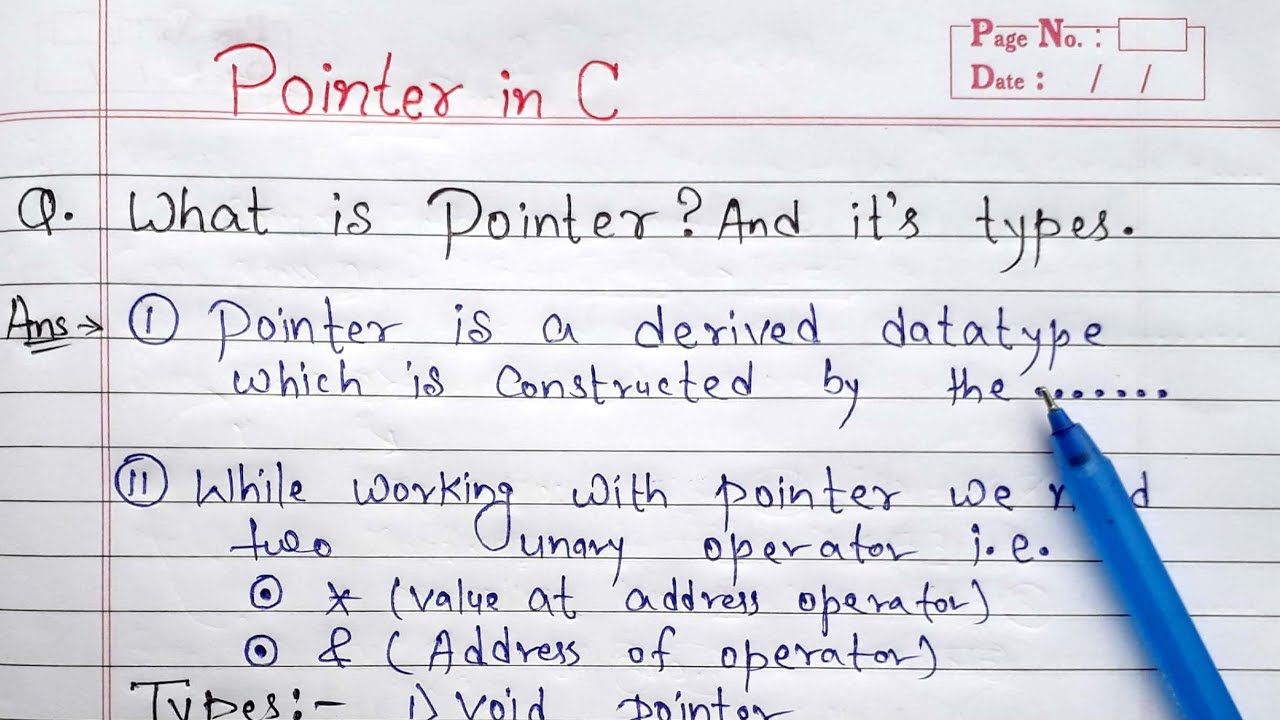 Pointer in C
Page No. :
Date : / /
Q. What is Pointer? And it's types.
Ans → I Pointer is a derived datatype
which is constructed by the .......
II While working with pointer we
two unary operator i.e.
* (value at address operator)
& (Address of operator)
Types:- 1) void pointer